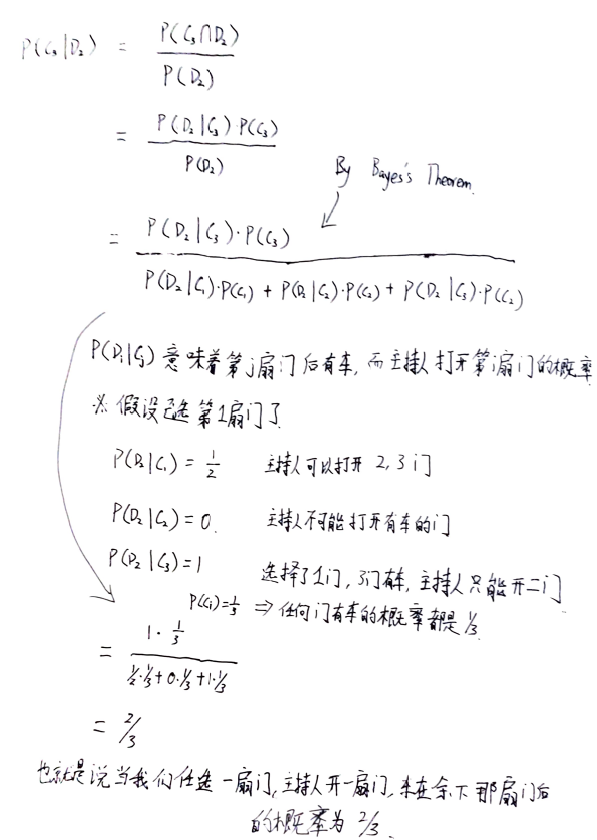 P(C₃|D₂) = P(C₃∩D₂) / P(D₂)
= P(D₂|C₃)·P(C₃) / P(D₂)
By Bayes's Theorem.
= P(D₂|C₃)·P(C₃) / P(D₂|C₁)·P(C₁) + P(D₂|C₂)·P(C₂) + P(D₂|C₃)·P(C₂)
P(Di|Cj) 意味着第j扇门后有车, 而主持人打开第i扇门的概率
※ 假设已选第1扇门了
P(D₂|C₁) = 1/2 主持人可以打开 2,3门
P(D₂|C₂) = 0. 主持人不可能打开有车的门
P(D₂|C₃) = 1 选择了1门, 3门有车, 主持人只能开二门
P(Ci)=1/3 ⇒ 任何门有车的概率都是 1/3.
= 1·1/3 / 1/2·1/3+0·1/3+1·1/3
= 2/3
也就是说当我们任选一扇门, 主持人开一扇门, 车在余下那扇门后
的概率为 2/3.